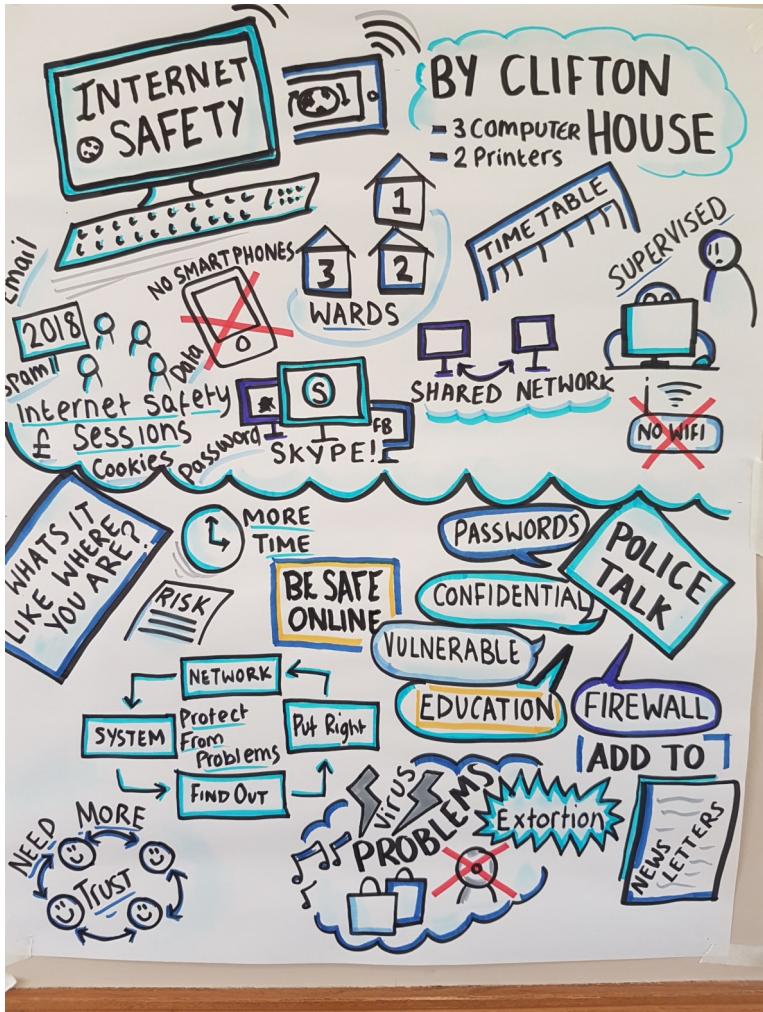 INTERNET
SAFETY
BY CLIFTON
HOUSE
- 3 COMPUTER
- 2 Printers
1
3
2
WARDS
TIME TABLE
SUPERVISED
Email
NO SMART PHONES
2018
Spam
Data
Internet Safety
£ Sessions
Cookies
Password
*
S
FB
SKYPE!
SHARED NETWORK
NO WIFI
WHATS IT
LIKE WHERE
YOU ARE?
MORE
TIME
RISK
BE SAFE
ONLINE
PASSWORDS
CONFIDENTIAL
VULNERABLE
EDUCATION
POLICE
TALK
FIREWALL
ADD TO
NEWS
LETTERS
NETWORK
SYSTEM
Protect
From
Problems
Put Right
FIND OUT
NEED MORE
TRUST
Virus
PROBLEMS
Extortion